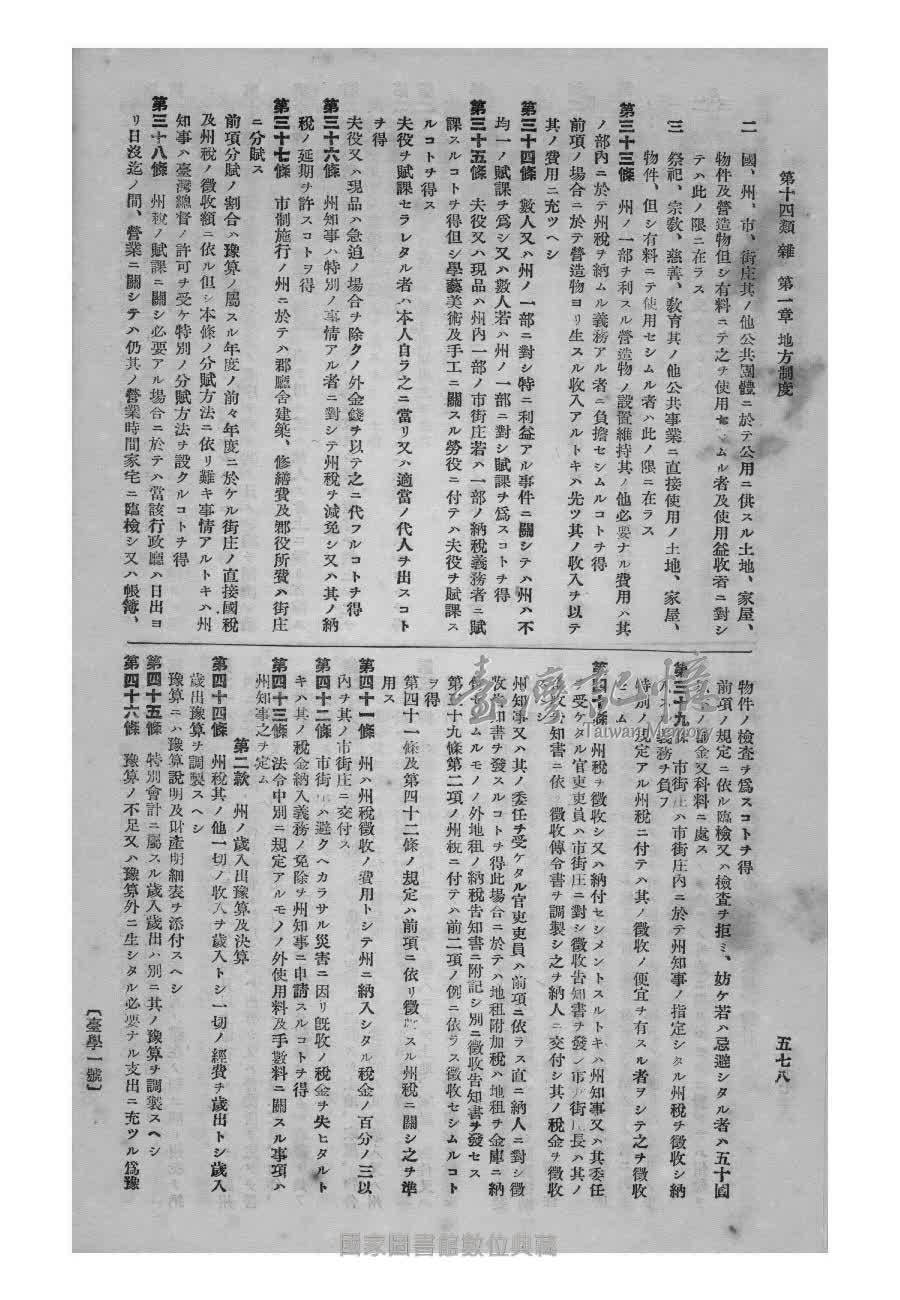 第十四類 雜 第一章 地方制度
五七八
二 國、州、市、街庄其ノ他公共團體ニ於テ公用ニ供スル土地、家屋、
物件及營造物但シ有料ニテ之ヲ使用セシムル者及使用益收者ニ對シ
テハ此ノ限ニ在ラス
三 祭祀、宗敎、慈善、敎育其ノ他公共事業ニ直接使用ノ土地、家屋、
物件、但シ有料ニテ使用セシムル者ハ此ノ限ニ在ラス
第三十三條 州ノ一部ヲ利スル營造物ノ設置維持其ノ他必要ナル費用ハ其
ノ部內ニ於テ州稅ヲ納ムル義務アル者ニ負擔セシムルコトヲ得
前項ノ場合ニ於テ營造物ヨリ生スル收入アルトキハ先ツ其ノ收入ヲ以テ
其ノ費用ニ充ツヘシ
第三十四條 數人又ハ州ノ一部ニ對シ特ニ利益アル事件ニ關シテハ州ハ不
均一ノ賦課ヲ爲シ又ハ數人若ハ州ノ一部ニ對シ賦課ヲ爲スコトヲ得
第三十五條 夫役又ハ現品ハ州內一部ノ市街庄若ハ一部ノ納稅義務者ニ賦
課スルコトヲ得但シ學藝美術及手工ニ關スル勞役ニ付テハ夫役ヲ賦課ス
ルコトヲ得ス
夫役ヲ賦課セラレタル者ハ本人自ラ之ニ當リ又ハ適當ノ代人ヲ出スコト
ヲ得
夫役又ハ現品ハ急迫ノ場合ヲ除クノ外金錢ヲ以テ之ニ代フルコトヲ得
第三十六條 州知事ハ特別ノ事情アル者ニ對シテ州稅ヲ減免シ又ハ其ノ納
稅ノ延期ヲ許スコトヲ得
第三十七條 市制施行ノ州ニ於テハ郡廳舍建築、修繕費及郡役所費ハ街庄
ニ分賦ス
前項分賦ノ割合ハ豫算ノ屬スル年度ノ前々年度ニ於ケル街庄ノ直接國稅
及州稅ノ徵收額ニ依ル但シ本條ノ分賦方法ニ依リ難キ事情アルトキハ州
知事ハ臺灣總督ノ許可ヲ受ケ特別ノ分賦方法ヲ設クルコトヲ得
第三十八條 州稅ノ賦課ニ關シ必要アル場合ニ於テハ當該行政廳ハ日出ヨ
リ日沒迄ノ間、營業ニ關シテハ仍其ノ營業時間家宅ニ臨檢シ又ハ帳簿、
物件ノ檢査ヲ爲スコトヲ得
前項ノ規定ニ依ル臨檢又ハ檢査ヲ拒ミ、妨ケ若ハ忌避シタル者ハ五十圓
ノ罰金又科料ニ處ス
第三十九條 市街庄ハ市街庄內ニ於テ州知事ノ指定シタル州稅ヲ徵收シ納
義務ヲ負フ
特別ノ規定アル州稅ニ付テハ其ノ徵收ノ便宜ヲ有スル者ヲシテ之ヲ徵收
ム
第四十條 州稅ヲ徵收シ又ハ納付セシメントスルトキハ州知事又ハ其委任
受ケタル官吏吏員ハ市街庄ニ對シ徵收吿知書ヲ發シ市尹街庄長ハ其ノ
收吿知書ニ依 徵收傳令書ヲ調製シ之ヲ納人ニ交付シ其ノ稅金ヲ徵收
シ
州知事又ハ其ノ委任ヲ受ケタル官吏吏員ハ前項ニ依ラス直ニ納人ニ對シ徵
收吿知書ヲ發スルコトヲ得此場合ニ於テハ地租附加稅ハ地租ヲ金庫ニ納
付セシムルモノノ外地租ノ納稅吿知書ニ附記シ別ニ徵收吿知書ヲ發セス
第三十九條第二項ノ州稅ニ付テハ前二項ノ例ニ依ラス徵收セシムルコト
ヲ得
第四十一條及第四十二條ノ規定ハ前項ニ依リ徵收スル州稅ニ關シ之ヲ準
用ス
第四十一條 州ハ州稅徵收ノ費用トシテ州ニ納入シタル稅金ノ百分ノ三以
內ヲ其ノ市街庄ニ交付ス
第四十二條 市街庄ハ避クヘカラサル災害ニ因リ旣收ノ稅金ヲ失ヒタルト
キハ其ノ稅金納入義務ノ免除ヲ州知事ニ申請スルコトヲ得
第四十三條 法令中別ニ規定アルモノノ外使用料及手數料ニ關スル事項ハ
州知事之ヲ定ム
第二款 州ノ歲入出豫算及決算
第四十四條 州稅其ノ他一切ノ收入ヲ歲入トシ一切ノ經費ヲ歲出トシ歲入
歲出豫算ヲ調製スヘシ
豫算ニハ豫算說明及財產明細表ヲ添付スヘシ
第四十五條 特別會計ニ屬スル歲入歲出ハ別ニ其ノ豫算ヲ調製スヘシ
第四十六條 豫算ノ不足又ハ豫算外ニ生シタル必要ナル支出ニ充ツル爲豫
〔臺學一號〕
臺灣記憶
Taiwan Memory
國家圖書館數位典藏